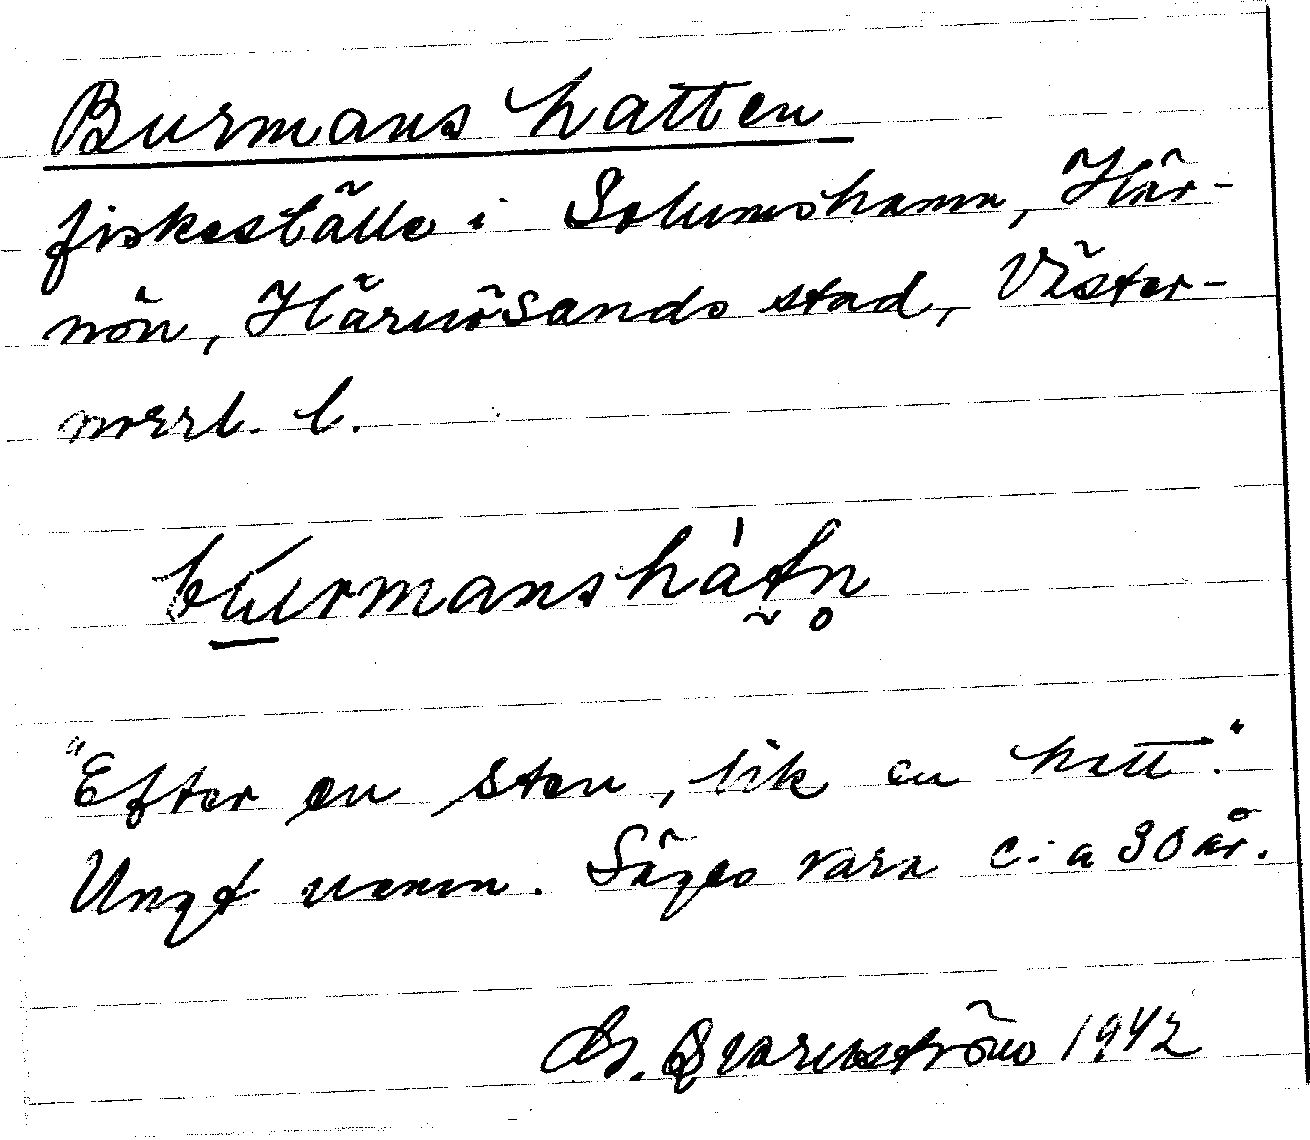 Burmans hatten
fiskeställe i Solumshamn, Här-
nön, Härnösands stad, Väster-
norrl. l.
bu̲rmanshàtn̥
"Efter en sten, lik en hatt."
Ungt namn. Säges vara c:a 30 år.
G. Qvarnström 1942